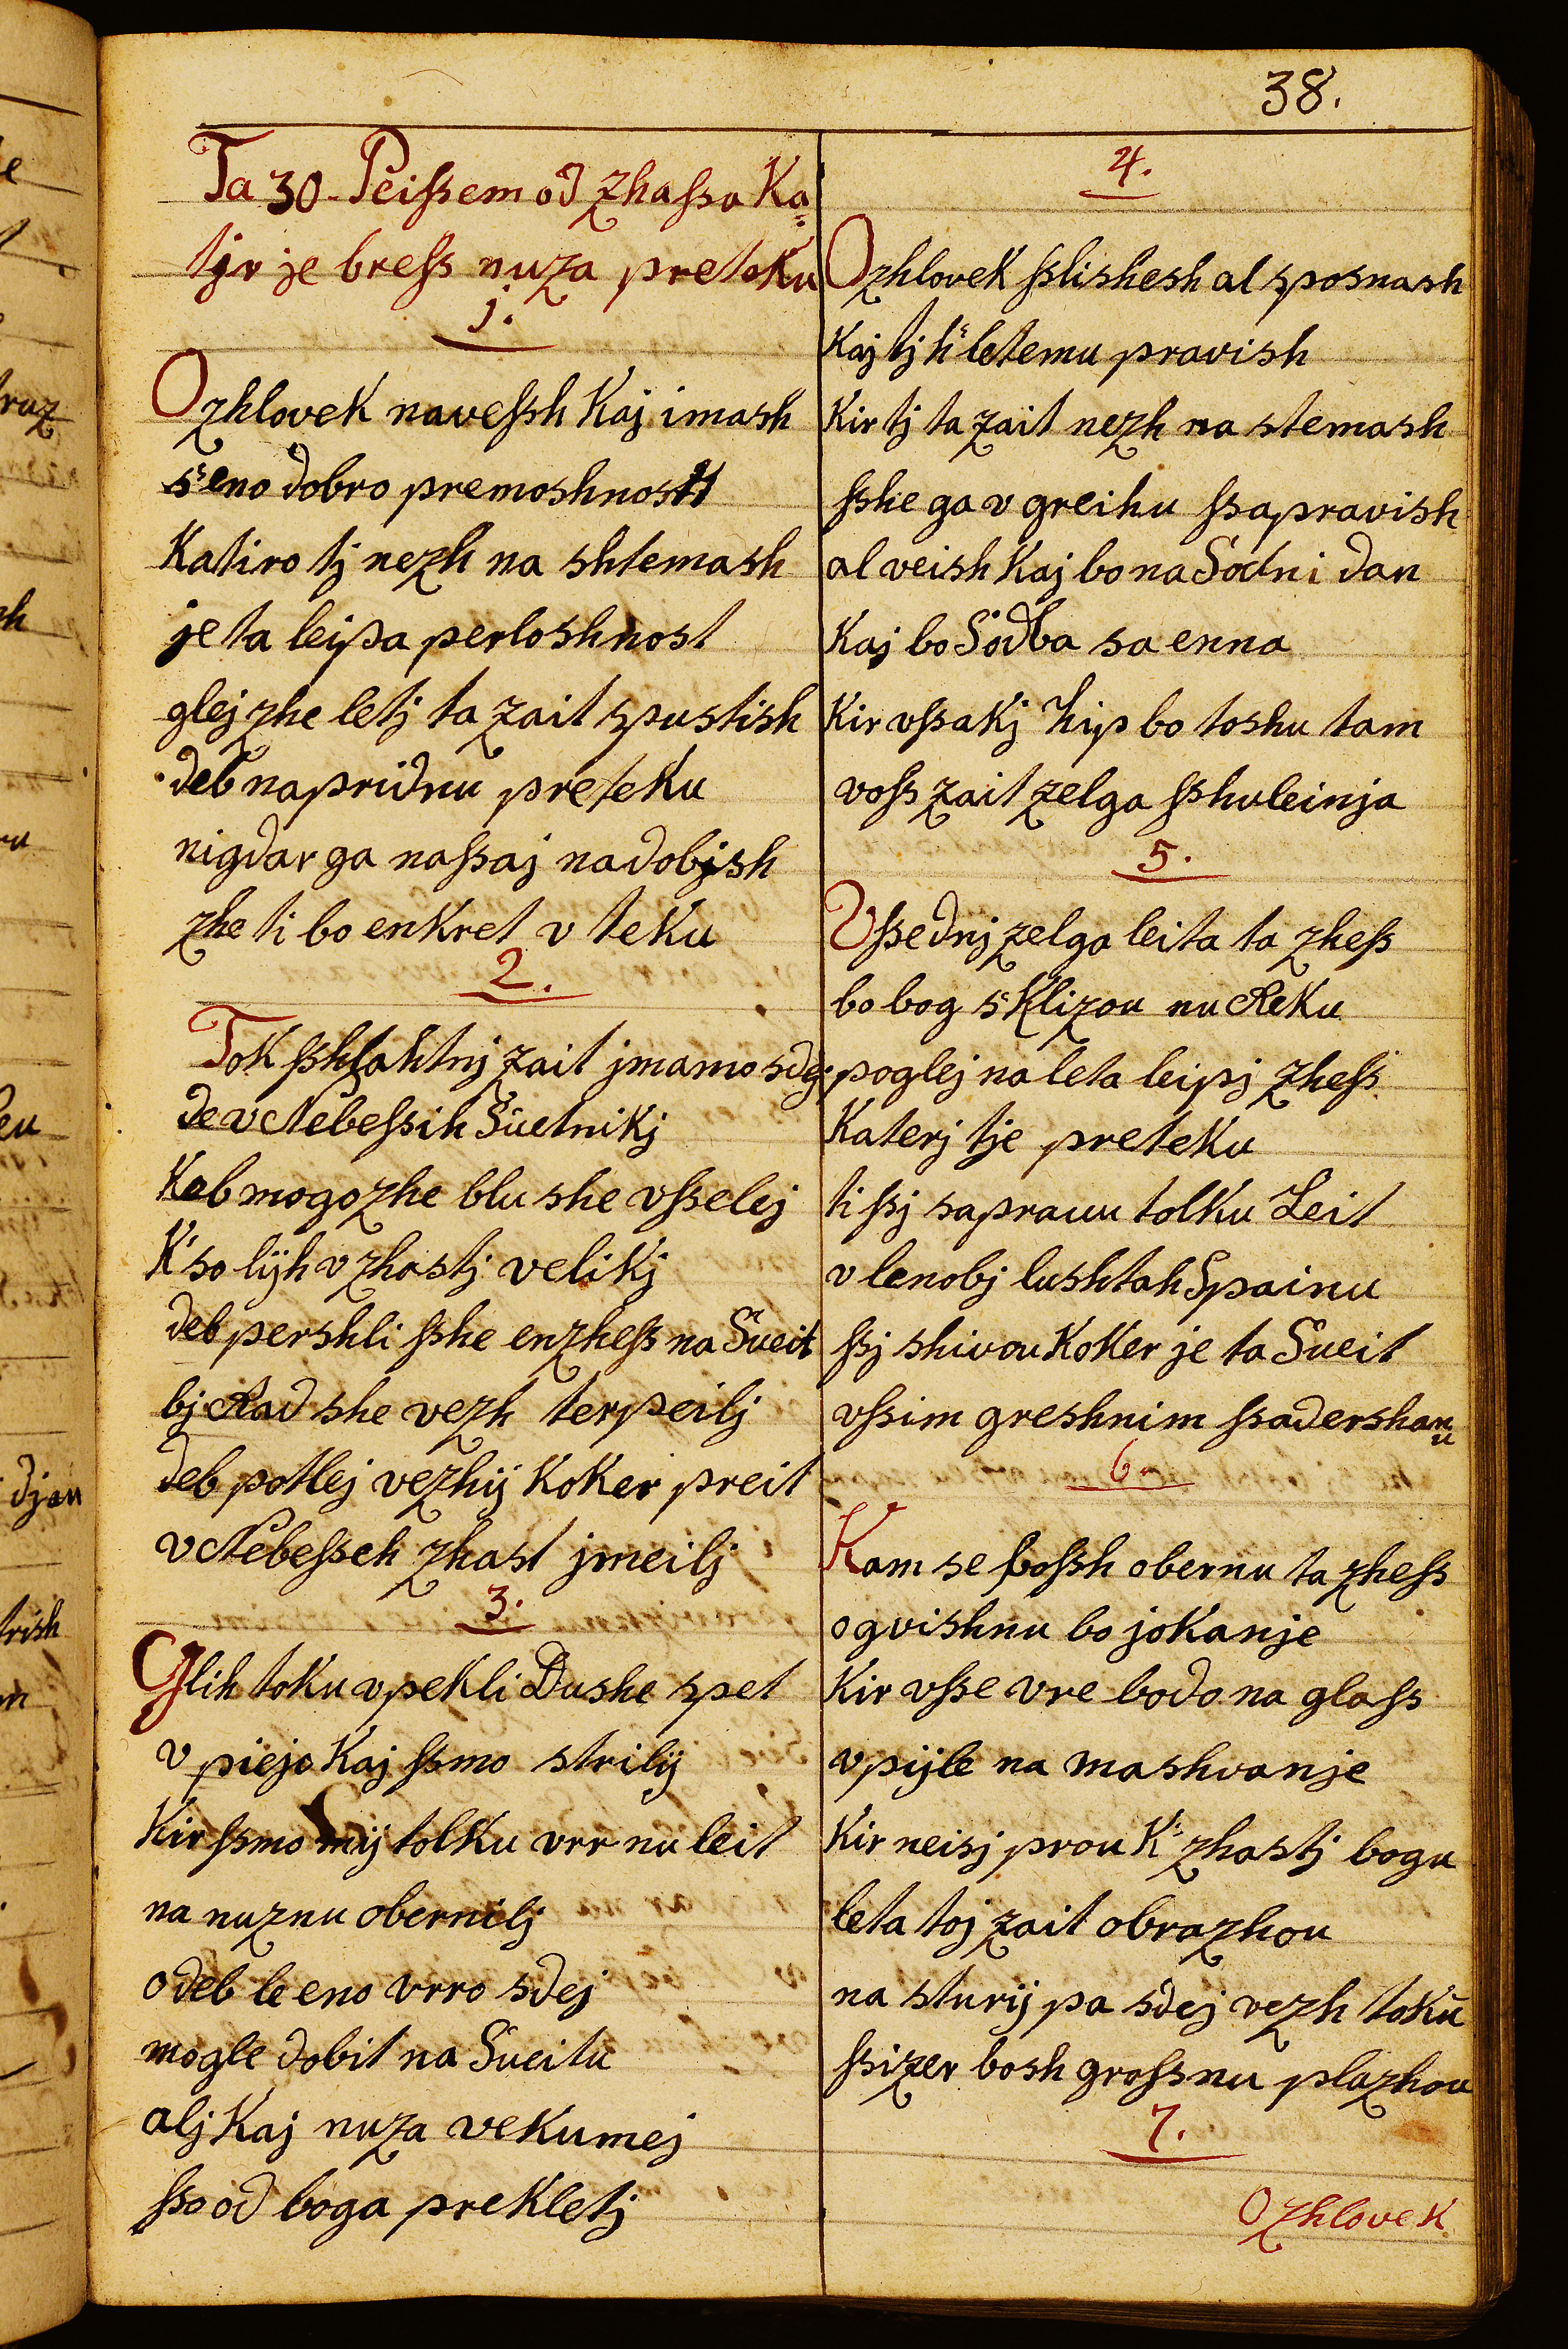 38.
Ta 30. Peißem od zhaßa Ka=
tjr je breß nuza preteku
j.
O zhlovek naveßh kaj imash
s'eno dobro premoshnost
Katiro tj nezh na shtemash
je ta leipa perloshnost
glej zhe letj ta zait spustish
deb napridnu preteku
nigdar ga naßaj nadobjsh
zhe ti bo enkret v teku
2.
Tok ßhlahtnj zait jmamo sdej
de v Nebeßih Suetnikj
Kab mogozhe blu she vßelej
K' so lijh v zhastj velikj
deb pershli ßhe enzheß na Sueit
bj Rad she vezh terpeilj
deb potlej vezhij koker preit
v Nebeßeh zhast jmeilj
3.
Glih toku v pekli Dushe spet
v piejo kaj ßmo strilij
Kir ßmo mij tolku vrr nu leit
na nuznu obernilj
o deb le eno vrro sdej
mogle dobit na Sueitu
alj kaj nuza vekumej
ßo od boga prekletj
4.
O zhlovek ßlishesh al sposnash
Kaj tj k' letemu pravish
Kir tj ta zait nezh na stemash
ßhe ga v greihu ßapravish
al veish kaj bo na Sodni dan
Kaj bo Sodba sa enna
Kir vßakj hip bo toshu tam
voß zait zelga ßhuleinja
5.
Vßednj zelga leita ta zheß
bo bog s' klizou nu Reku
poglej na leta leipj zheß
Katerj tje preteku
ti ßj saprauu tolku Leit
v lenobj lushtah Spainu
ßj shivou koker je ta Sueit
vßim greshnim ßadershanu
6.
Kam se boßh obernu ta zheß
ogvishnu bo jokanje
Kir vße vre bodo na glaß
v pijle na mashvanje
Kir neisj prou k' zhastj bogu
leta toj zait obrazhou
na sturij pa sdej vezh toku
ßizer bosh großnu plazhou
7.
O zhlovek